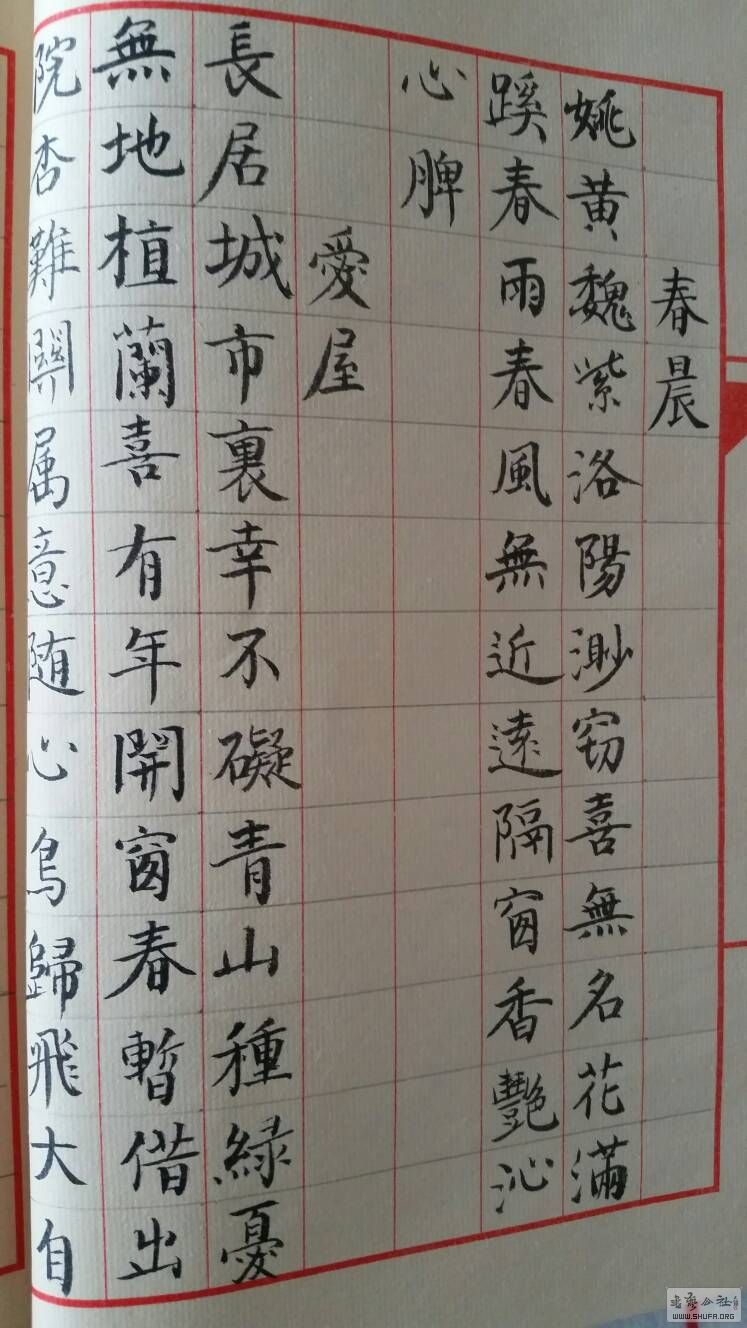 春晨
姚黄魏紫洛陽渺窃喜無名花滿
蹊春雨春風無近遠隔窗香艷沁
心脾
愛屋
長居城市裏幸不礙青山種綠憂
無地植蘭喜有年開窗春暫借出
院杏難關属意随心鳥歸飛大自
WWW.SHUFA.ORG